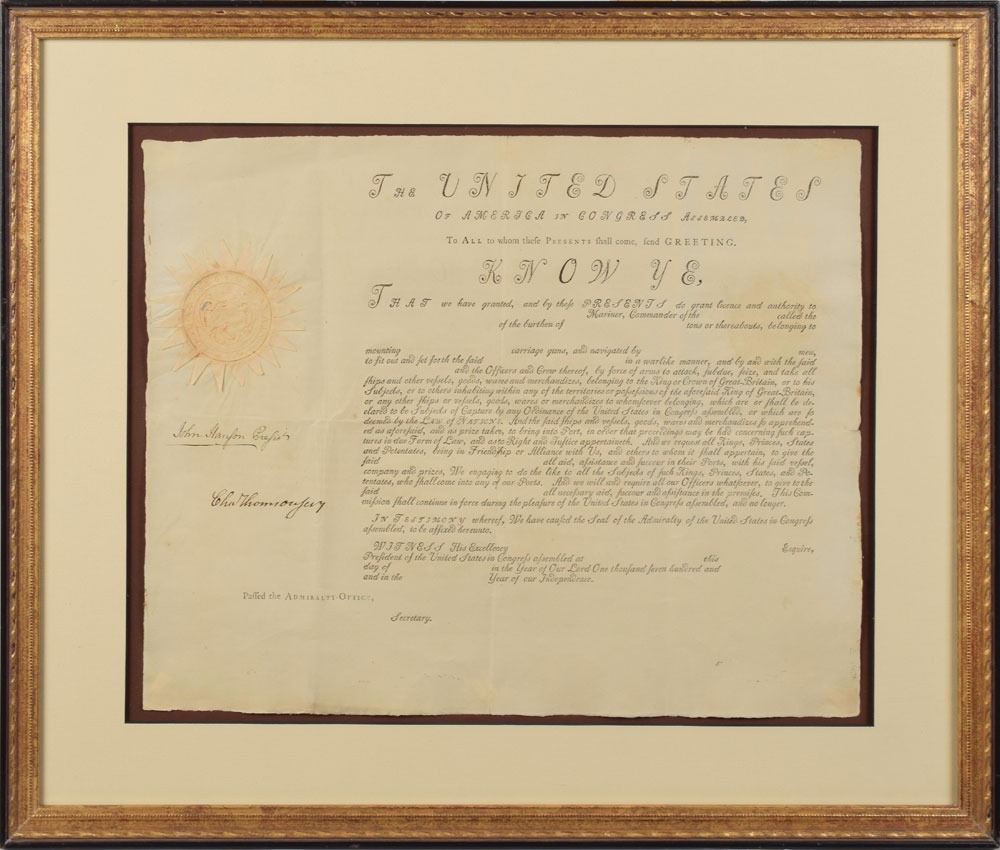 THE UNITED STATES
OF AMERICA IN CONGRESS ASSEMBLED,
To ALL to whom theſe PRESENTS ſhall come, ſend GREETING.
KNOW YE,
THAT we have granted, and by theſe PRESENTS do grant licence and authority to
Mariner, Commander of the called the
of the burthen of tons or thereabouts, belonging to
mounting carriage guns, and navigated by men,
to fit out and ſet forth the ſaid in a warlike manner, and by and with the ſaid
and the Officers and Crew thereof, by force of arms to attack, ſubdue, ſeize, and take all
ſhips and other veſſels, goods, wares and merchandizes, belonging to the King or Crown of Great-Britain, or to his
Subjects, or to others inhabiting within any of the territories or poſſeſſions of the aforeſaid King of Great-Britain,
or any other ſhips or veſſels, goods, wares or merchandizes to whomſoever belonging, which are or ſhall be de-
clared to be Subjects of Capture by any Ordinance of the United States in Congreſs aſſembled, or which are ſo
deemed by the LAW OF NATIONS. And the ſaid ſhips and veſſels, goods, wares and merchandizes ſo apprehend-
ed as aforeſaid, and as prize taken, to bring into Port, in order that proceedings may be had concerning ſuch cap-
tures in due Form of Law, and as to Right and Juſtice appertaineth. And we requeſt all Kings, Princes, States
and Potentates, being in Friendſhip or Alliance with Us, and others to whom it ſhall appertain, to give the
ſaid all aid, aſsiſtance and ſuccour in their Ports, with his ſaid veſſel,
company and prizes, We engaging to do the like to all the Subjects of ſuch Kings, Princes, States, and Po-
tentates, who ſhall come into any of our Ports. And we will and require all our Officers whatſoever, to give to the
ſaid all neceſſary aid, ſuccour and aſsiſtance in the premiſes. This Com-
miſſion ſhall continue in force during the pleaſure of the United States in Congreſs aſſembled, and no longer.
IN TESTIMONY whereof, We have cauſed the Seal of the Admiralty of the United States in Congreſs
aſſembled, to be affixed hereunto.
WITNESS His Excellency Eſquire,
Preſident of the United States in Congreſs aſſembled at this
day of in the Year of Our Lord One thouſand ſeven hundred and
and in the Year of our Independence.
John Hanson Presidt
Cha Thomson secy
Paſſed the ADMIRALTY-OFFICE,
Secretary.